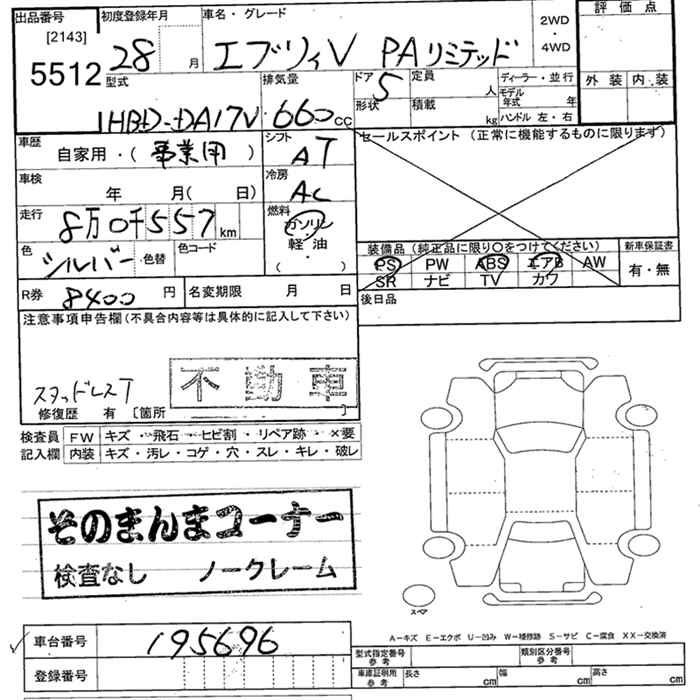 出品番号
[2143]
5512
初度登録年月
28 月
車名・グレード
エブリィV PAリミテッド
2WD
・
4WD
評価点
外装 内装
型式
HBD-DA17V
排気量
660 cc
ドア
5
形状
定員
人
積載
kg
ディーラー・並行
モデル
年式 年
ハンドル 左・右
車歴
自家用・(事業用)
シフト
AT
セールスポイント(正常に機能するものに限ります)
車検
年 月( 日)
冷房
AC
走行
8万0千557km
燃料
ガソリン
軽・油
( ・ )
色
シルバー
・色替
色コード
装備品(純正品に限り○をつけてください)
PS PW ABS エアB AW
SR ナビ TV カワ
新車保証書
有・無
R券 8400 円
名変期限 月 日
後日品
注意事項申告欄(不具合内容等は具体的に記入して下さい)
スタッドレスT
不動車
修復歴 有 〔箇所 〕
検査員
記入欄
FW キズ・飛石・ヒビ割・リペア跡・×要
内装 キズ・汚レ・コゲ・穴・スレ・キレ・破レ
そのまんまコーナー
検査なし ノークレーム
スペア
A-キズ E-エクボ U-凹み W-補修跡 S-サビ C-腐食 XX-交換済
車台番号 195696
登録番号
型式指定番号
参考
類別区分番号
参考
車庫証明用
参考
長さ cm 幅 cm 高さ cm